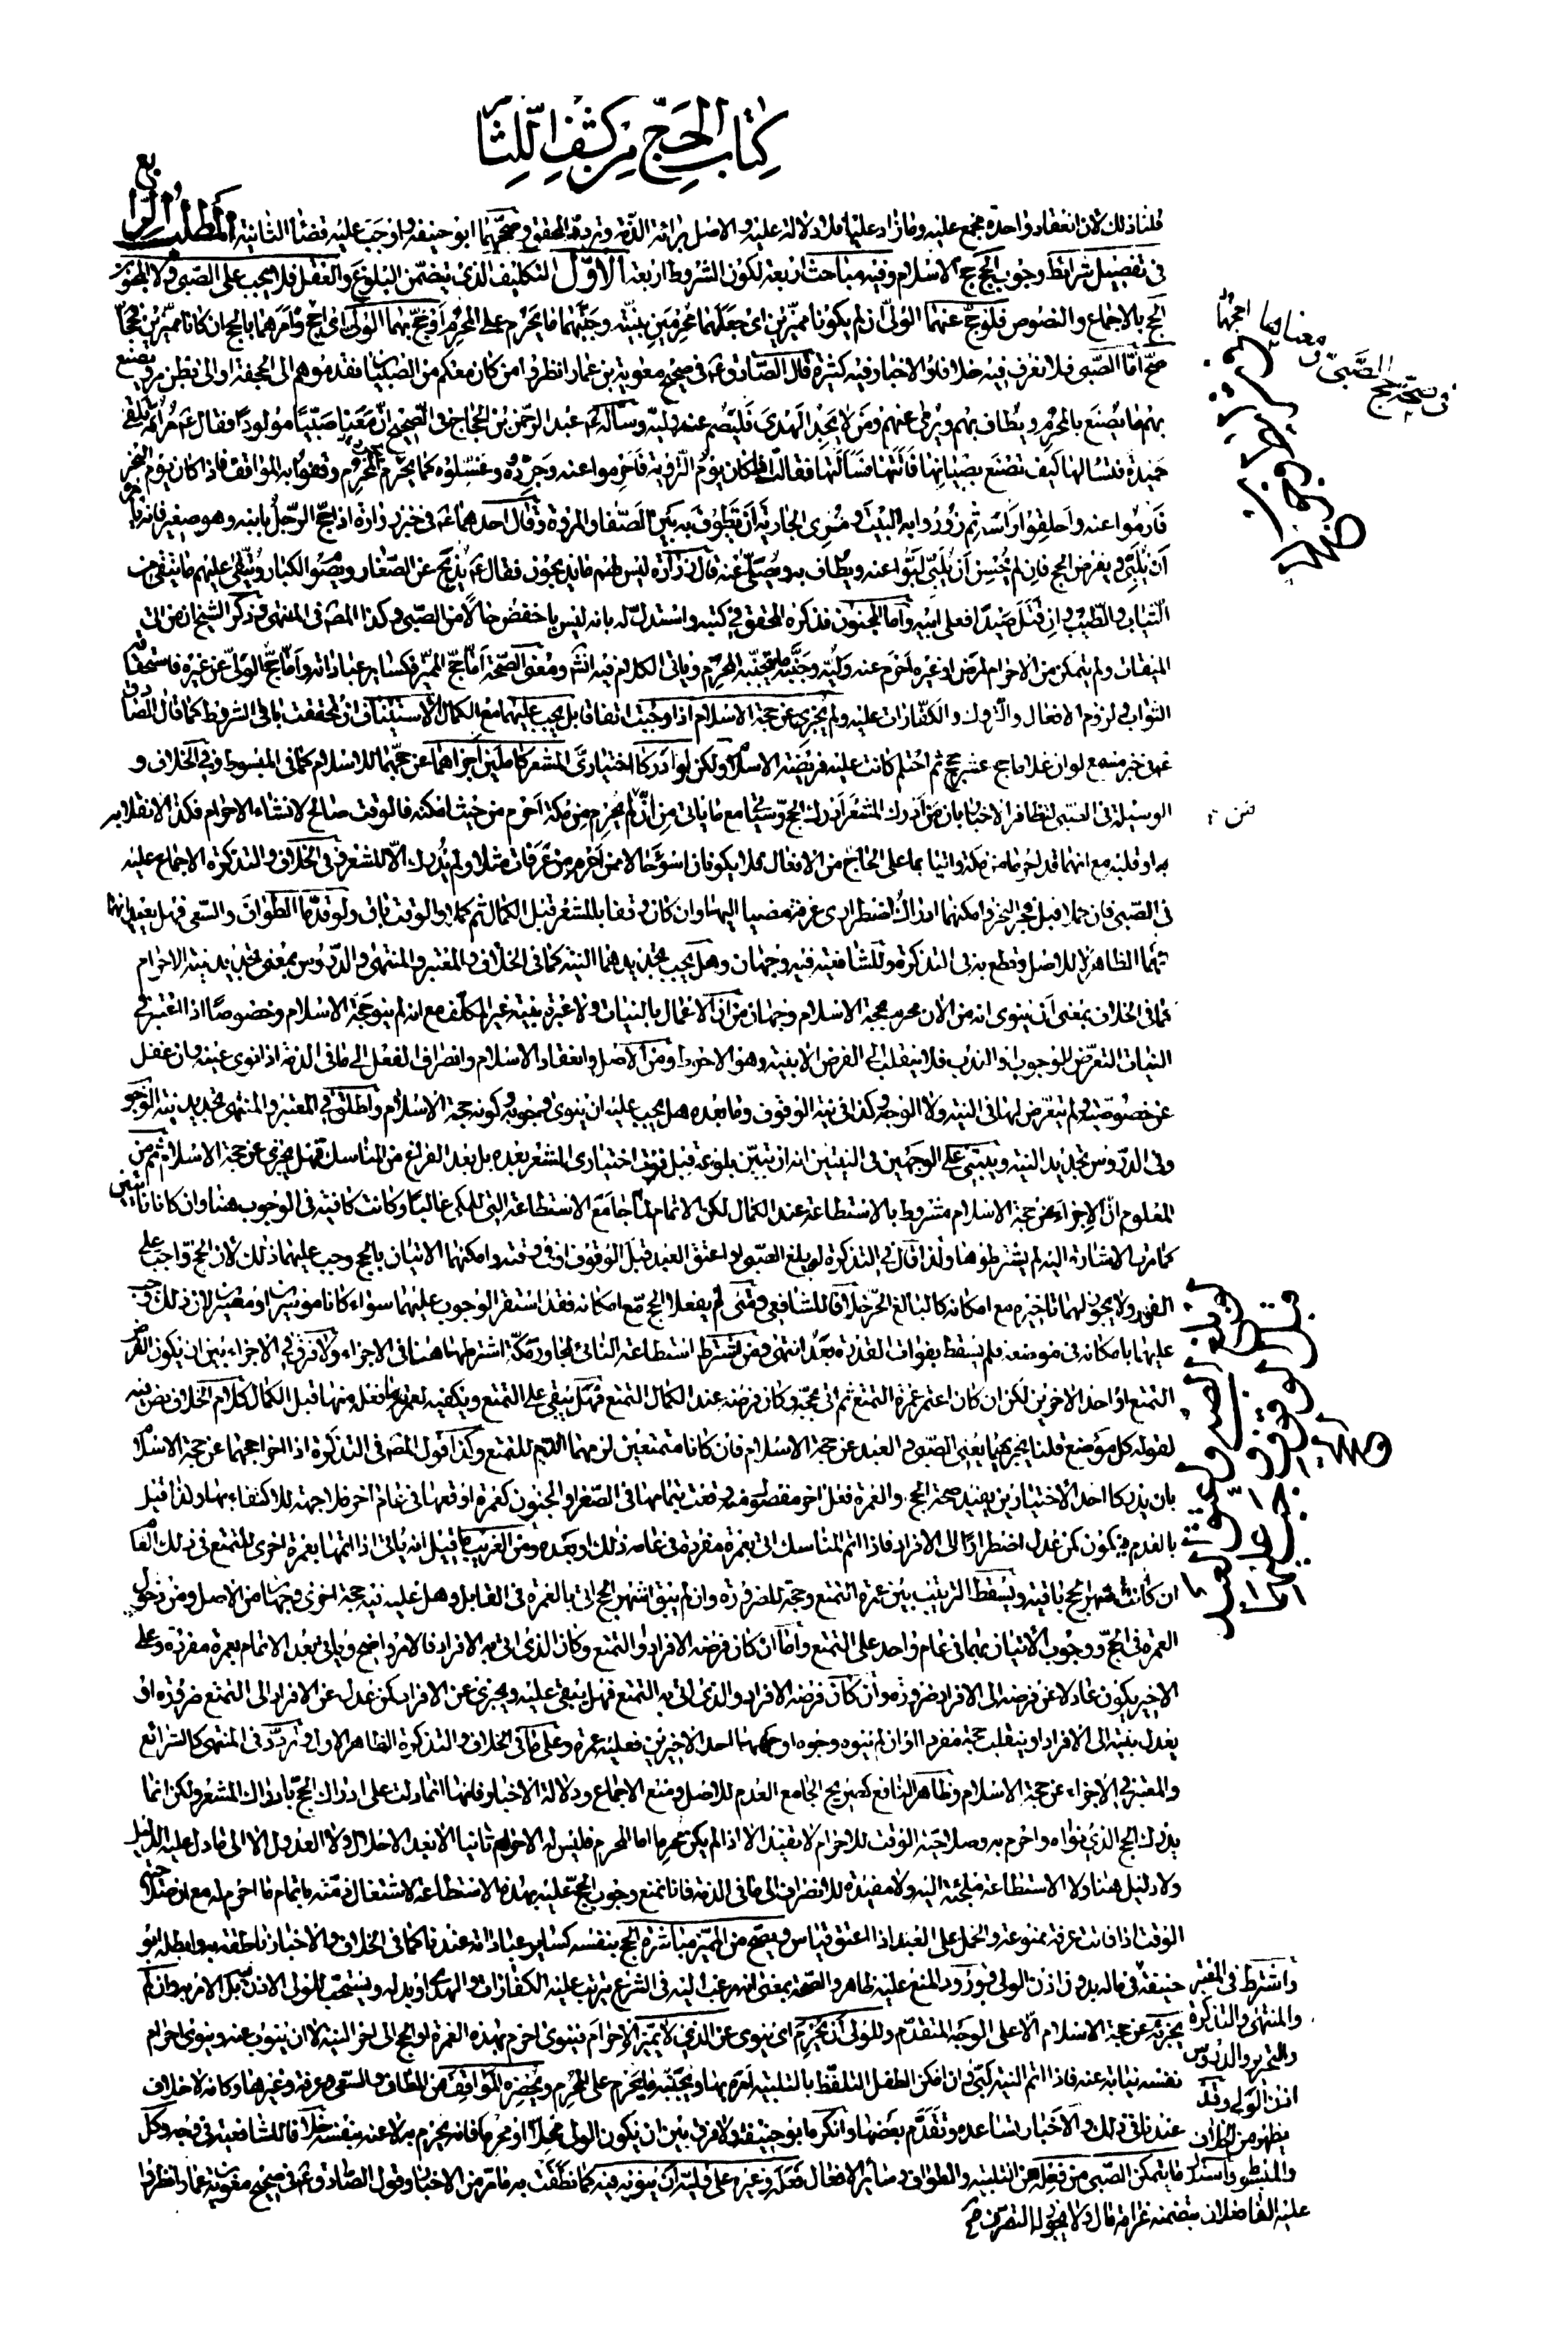 كتاب الحج من كشف اللثام
قلنا ذلك لان انعقاد واحدة مجمع عليه وما زاد عليها فلا دلالة عليه والاصل برائة الذمة وتردد المحقق وصححهما ابو حنيفة واوجب عليه قضاء الثانية المطلب الرابع
فى تفصيل شرائط وجوب الحج حج الاسلام وفيه مباحث اربعة لكون الشروط اربعة الاول التكليف الذى يتضمن البلوغ والعقل فلا يجب على الصبى ولا المجنون
الحج بالاجماع والنصوص فلو حج عنهما الولى ان لم يكونا مميزين اى جعلهما محرمين بنيته وجنبهما ما يحرم على المحرم او حج بهما الولى اى حج وامرهما بالحج ان كانا مميزين فحجا
صح اما الصبى فلا نعرف فيه خلافا والاخبار فيه كثيرة قال الصادق ع فى صحيح معوية بن عمار انظروا من كان معكم من الصبيان فقدموهم الى الجحفة او الى بطن مر ويصنع
بهم ما يصنع بالمحرم ويطاف بهم ويرمى عنهم ومن لا يجد الهدى فليصم عنه وليه وساله ع عبد الرحمن بن الحجاج فى الصحيح ان معنا صبيا مولودا فقال ع مر امه تلقى
حميدة فتسالها كيف تصنع بصبيانها فاتتها فسالتها فقالت اذا كان يوم التروية فاحرموا عنه وجردوه وغسلوه كما يجرد المحرم وقفوا به المواقف فاذا كان يوم النحر
فارموا عنه واحلقوا راسه ثم زوروا به البيت ومرى الجارية ان تطوف به بين الصفا والمروة وقال احدهما ع فى خبر زرارة اذا حج الرجل بابنه وهو صغير فانه يامره
ان يلبى ويفرض الحج فان لم يحسن ان يلبى لبوا عنه ويطاف به ويصلى عنه قال زرارة ليس لهم ما يذبحون فقال ع يذبح عن الصغار ويصوم الكبار ويتقى عليهم ما يتقى من
الثياب والطيب وان قتل صيدا فعلى ابيه واما المجنون فذكره المحقق فى كتبه واستدل له بانه ليس باخفض حالا من الصبى وكذا المصـ فى المنتهى وذكر الشيخان من اتى
الميقات ولم يتمكن من الاحرام لمرض او غيره احرم عنه وليه وجنبه ما يتجنبه المحرم وياتى الكلام فيه انشـ ومعنى الصحة اما حج المميز فكساير عباداته واما حج الولى عن غيره فاستحقاقه
الثواب ولزوم الافعال والتروك والكفارات عليه ولم يجزى عن حجة الاسلام اذا وجبت اتفاقا بل يجب عليهما مع الكمال الاستيناف ان تحققت باقى الشروط كما قال الصادق
ع فى خبر مسمع لو ان غلاما حج عشر حجج ثم احتلم كانت عليه فريضة الاسلام ولكن لو ادركا اختيارى المشعر كاملين اجزاهما عن حجتهما للاسلام كما فى المبسوط وفى الخلاف و
الوسيلة فى الصبى لتظافر الاخبار بان من ادرك المشعر ادرك الحج وسيجئ مع ما ياتى من ان من لم يحرم من مكة احرم من حيث امكنه فالوقت صالح لانشاء الاحرام فكذا لانقلابه
به او قلبه مع انهما قد احرما من مكة واتيا بما على الحاج من الافعال فلا يكونان اسوء حالا ممن احرم من عرفات مثلا ولم يدرك الا المشعر وفى الخلاف والتذكرة الاجماع عليه
فى الصبى فان كملا قبل فجر النحر وامكنهما ادراك اضطرارى عرفة مضيا اليها وان كان وقفا بالمشعر قبل الكمال ثم كملا والوقت باق ولو قدما الطواف والسعى فهل يعيدانهما
ثمما الظاهر لا للاصل وقطع به فى التذكرة وللشافعية فيه وجهان وهل يجب تجديدهما النية كما فى الخلاف والمعتبر والمنتهى والدروس بمعنى تجديد نية الاحرام
كما فى الخلاف بمعنى ان ينوى انه من الان محرم بحجة الاسلام وجهان من ان الاعمال بالنيات ولا عبرة بنية غير المكلف مع انه لم ينو حجة الاسلام وخصوصا اذا اعتبر فى
النيات التعرض للوجوب او الندب فلا ينقلب الى الفرض الا بنية وهو الاحوط ومن الاصل وانعقاد الاسلام وانصراف الفعل الى ما فى الذمة اذا نوى عينه وان غفل
عن خصوصيته ولم يتعرض لها فى النية ولا الوجه وكذا فى نية الوقوف وما بعده هل يجب عليه ان ينوى وجوبه وكونه حجة الاسلام واطلق فى المعتبر والمنتهى تجديد نية الوجوب
وفى الدروس تجديد النية ويبتنى على الوجهين فى النيتين انه ان تبين بلوغه قبل فوت اختيارى المشعر بعده بل بعد الفراغ من المناسك فهل يجزى عن حجة الاسلام ثم من
المعلوم ان الاجزاء عن حجة الاسلام مشروط بالاستطاعة عند الكمال لكن الاتمام لما جامع الاستطاعة التى للمكى غالبا وكانت كافية فى الوجوب هنا وان كانا نائيين
كما مرت الاشارة اليه لم يشترطوها ولذا قال فى التذكرة لو بلغ الصبى او اعتق العبد قبل الوقوف او فى وقته وامكنهما الاتيان بالحج وجب عليهما ذلك لان الحج واجب على
الفور ولا يجوز لهما تاخيره مع امكانه كالبالغ الحر خلافا للشافعى ومتى لم يفعلا الحج مع امكانه فقد استقر الوجوب عليهما سواء كانا موسرين او معسرين لان ذلك وجب
عليهما بامكانه فى موضعه فلم يسقط بفوات القدرة بعده انتهى ومن اشترط استطاعة النائى لمجاور مكة اشترطها هنا فى الاجزاء ولا فرق فى الاجزاء بين ان يكون الفرض
التمتع او احد الاخرين لكن ان كان اعتمر عمرة التمتع ثم اتى بحجة وكان فرضه عند الكمال التمتع فهل يبقى على التمتع ويكفيه لعمرته ما فعله منها قبل الكمال كلام الخلاف نص فيه
لقوله كل موضع قلنا يجزيهما يعنى الصبى والعبد عن حجة الاسلام فان كانا متمتعين لزمهما الدم للتمتع وكذا قول المصـ فى التذكرة اذا احرما حجهما عن حجة الاسلام
بان يدركا احد الاختيارين يفيد صحة الحج والعمرة فعل اخر مفصول منه وقعت بتمامها فى الصغر او الجنون كعمرة اوقعها فى عام اخر فلا جهة للاكتفاء بها ولذا قيل
بالعدم فيكون كمن عدل اضطرارا الى الافراد فاذا اتم المناسك اتى بعمرة مفردة فى عامه ذلك او بعده ومن الغريب ما قيل انه ياتى اذا اتمها بعمرة اخرى للتمتع فى ذلك العام
ان كانت اشهر الحج باقية ويسقط الترتيب بين عمرة التمتع وحجه للضرورة وان لم يبق اشهر الحج اتى بالعمرة فى القابل وهل عليه نية حجة اخرى وجهان من الاصل ومن دخول
العمرة فى الحج ووجوب الاتيان بهما فى عام واحد على التمتع واما ان كان فرضه الافراد او التمتع وكان الذى اتى به الافراد فالامر واضح وياتى بعد الاتمام بعمرة مفردة وعلى
الاخير يكون عادلا عن فرضه الى الافراد ضرورة وان كان فرضه الافراد والذى اتى به التمتع فهل يبقى عليه ويجزى عن الافراد كمن عدل عن الافراد الى التمتع ضرورة او
يعدل بنيته الى الافراد او ينقلب حجه مفردا وان لم ينوه وجوه
والمعتبر فى الاجزاء عن حجة الاسلام وظاهر النافع كصريح الجامع العدم للاصل ومنع الاجماع ودلالة الاخبار فانها انما دلت على ادراك الحج بادراك المشعر ولكن انما
يدرك الحج الذى نواه واحرم به وصلاحية الوقت للاحرام لا تفيد الا اذا لم يكن محرما اما المحرم فليس له الاحرام ثانيا الا بعد الاحلال ولا العدول الا الى ما دل عليه الدليل
ولا دليل هنا ولا الاستطاعة ملجئة اليه ولا مفيدة للانصراف الى ما فى الذمة فانا نمنع وجوب الحج عليه بهذه الاستطاعة لاشتغال ذمته باتمام ما احرم له مع ان صلاحية
الوقت اذا فاتت عرفة ممنوعة والحمل على العبد اذا اعتق قياس ويصح من المميز مباشرة الحج بنفسه كساير عباداته عندنا كما فى الخلاف والاخبار ناطقة به وابطله ابو
حنيفة
يجزئه عن حجة الاسلام الا على الوجه المتقدم وللولى ان يحرم اى ينوى عن الذى لا يميز الاحرام فينوى احرم بهذه العمرة او الحج الى اخر النية الا ان ينوب عنه وينوى احرام
نفسه نيابة عنه فاذا اتم النية لبى وان امكن الطفل التلفظ بالتلبية امره بها ويجنبه ما يحرم على المحرم ويحضره المواقف من المطاف والسعى وعرفة وغيرها وكانه لا خلاف
عندنا فى ذلك والاخبار تساعده وتقدم بعضها وانكره ابو حنيفة ولا فرق بين ان يكون الولى محلا او محرما فانه يحرم به لا عنه بنفسه خلافا للشافعية فى وجه وكل
ما يتمكن الصبى من فعله من التلبية والطواف وسائر الافعال فعله وغيره على وليه ان ينوبه فيه كما نطقت به ما مر من الاخبار وقول الصادق ع فى صحيح معوية بن عمار انظروا
فى صحة حج الصبى
واشترط فى المعتبر
والمنتهى والتذكرة
والتحرير والدروس
اذن الولى وقد
يظهر من الخلاف
والمبسوط واستدل
عليه الفاضلان بتضمنه غرامة مال ولا يجوز له التصرف